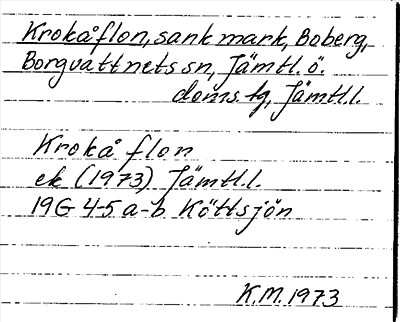 Krokåflon, sank mark, Boberg,
Borgvattnets sn, Jämtl. ö.
doms. tg, Jämtl.l.
Krokå flon
ek (1973) Jämtl.l.
19G 4-5 a-b Köttsjön
K.M. 1973